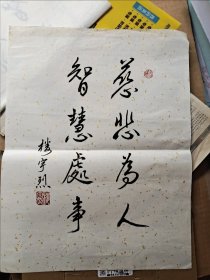 慈悲為人
智慧處事
楼宇烈